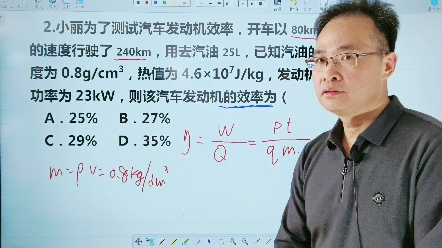 2.小丽为了测试汽车发动机效率，开车以 80km
的速度行驶了 240km，用去汽油 25L，已知汽油的
度为 0.8g/cm³，热值为 4.6×10⁷J/kg，发动机
功率为 23kW，则该汽车发动机的效率为（
A．25% B．27%
C．29% D．35%
η = W/Q = Pt/qm
m=ρV=0.8kg/dm³